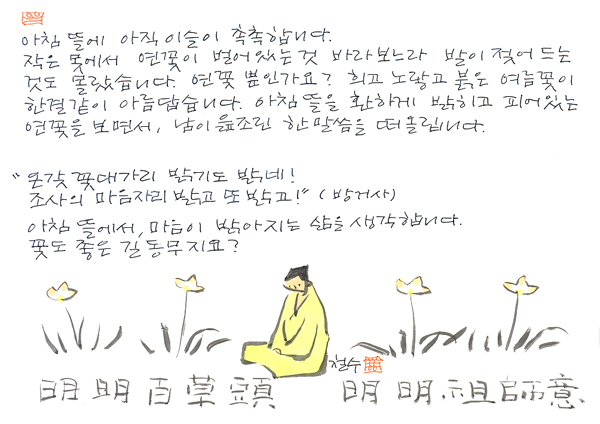 아침 뜰에 아직 이슬이 촉촉합니다.
작은 못에서 연꽃이 벌어 있는 것 바라보느라 발이 젖어 드는
것도 몰랐습니다. 연꽃 뿐인가요? 희고 노랗고 붉은 여름꽃이
한결같이 아름답습니다. 아침 뜰을 환하게 밝히고 피어있는
연꽃을 보면서, 남이 읊조린 한 말씀을 떠올립니다.
"온갖 꽃대가리 밝기도 밝네!
조사의 마음자리 밝고 또 밝고!" (방거사)
아침 뜰에서, 마음이 밝아지는 삶을 생각합니다.
꽃도 좋은 길동무지요?
철수
明明百草頭 明明祖師意